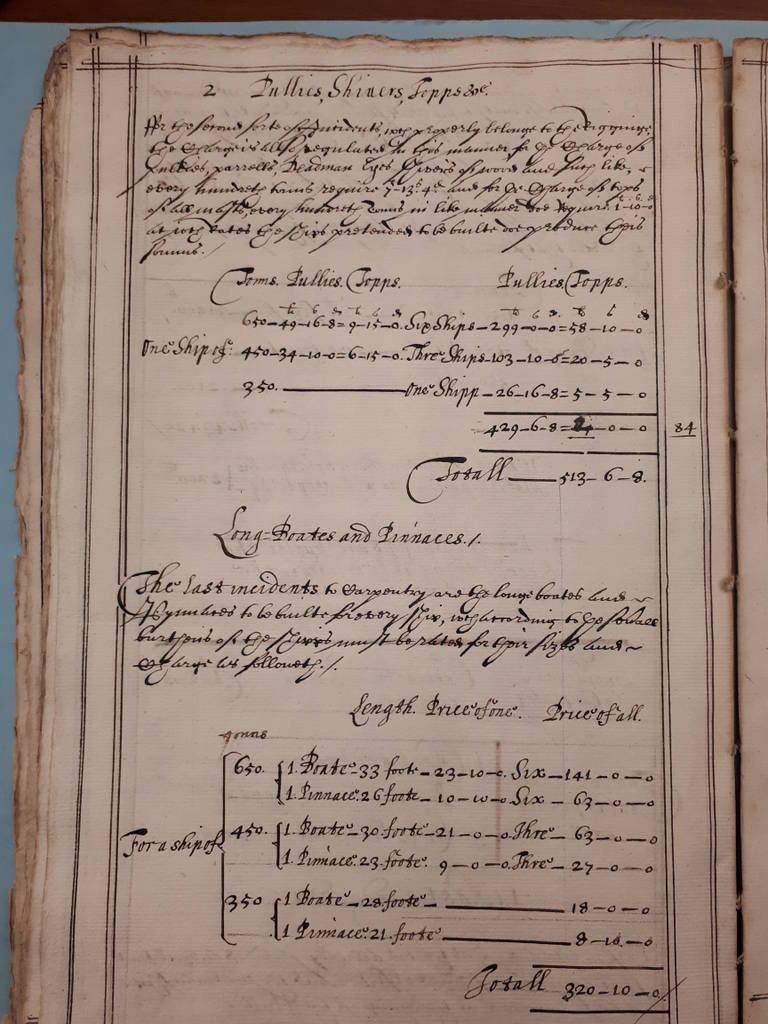 2 Pullies, Shivers, Topps &c.
For the second sorte of Incidents, wch properly belonge to the Rigginge,
the Charge is allso regulated in this manner for ye Charge of
Pullies, parrells, Deadman Eyes Shivers of wood and such like,
every hundreth tonns require 7-13s-4d and for ye Charge of tops
of all masts, every hundreth Tonns in like manner doe require 1-10-0
at wch rates the Ships pretended to be builte doe produce theis
somms.
Tonns. Pullies. Topps. Pullies. Topps.
li s d li s d li s d li s d
650-49-16-8=9-15-0. Six Ships-299-0-0=58-10-0
One Ship of: 450-34-10-0=6-15-0. Thre Ships-103-10-0=20-5-0
350. One Shipp-26-16-8=5-5-0
429-6-8=84-0-0 84
Totall 513-6-8.
Long=Boates and Pinnaces./.
The last incidents to Carpentry are the longe boates and
Pynnaces to be builte for every Ship, wch according to ye severall
burthens of the Shipps must be rated for their sizes and
Charge as followeth./.
Length. Price of one. Price of all.
Tonns
650. 1. Boate-33 foote-23-10-0. Six-141-0-0
1. Pinnace. 26 foote-10-10-0. Six-63-0-0
For a ship of 450. 1. Boate-30. foote-21-0-0. Thre-63-0-0
1. Pinnace. 23. foote. 9-0-0. Thre-27-0-0
350 1 Boate-28. foote 18-0-0
1 Pinnace. 21. foote 8-10-0
Totall 320-10-0/